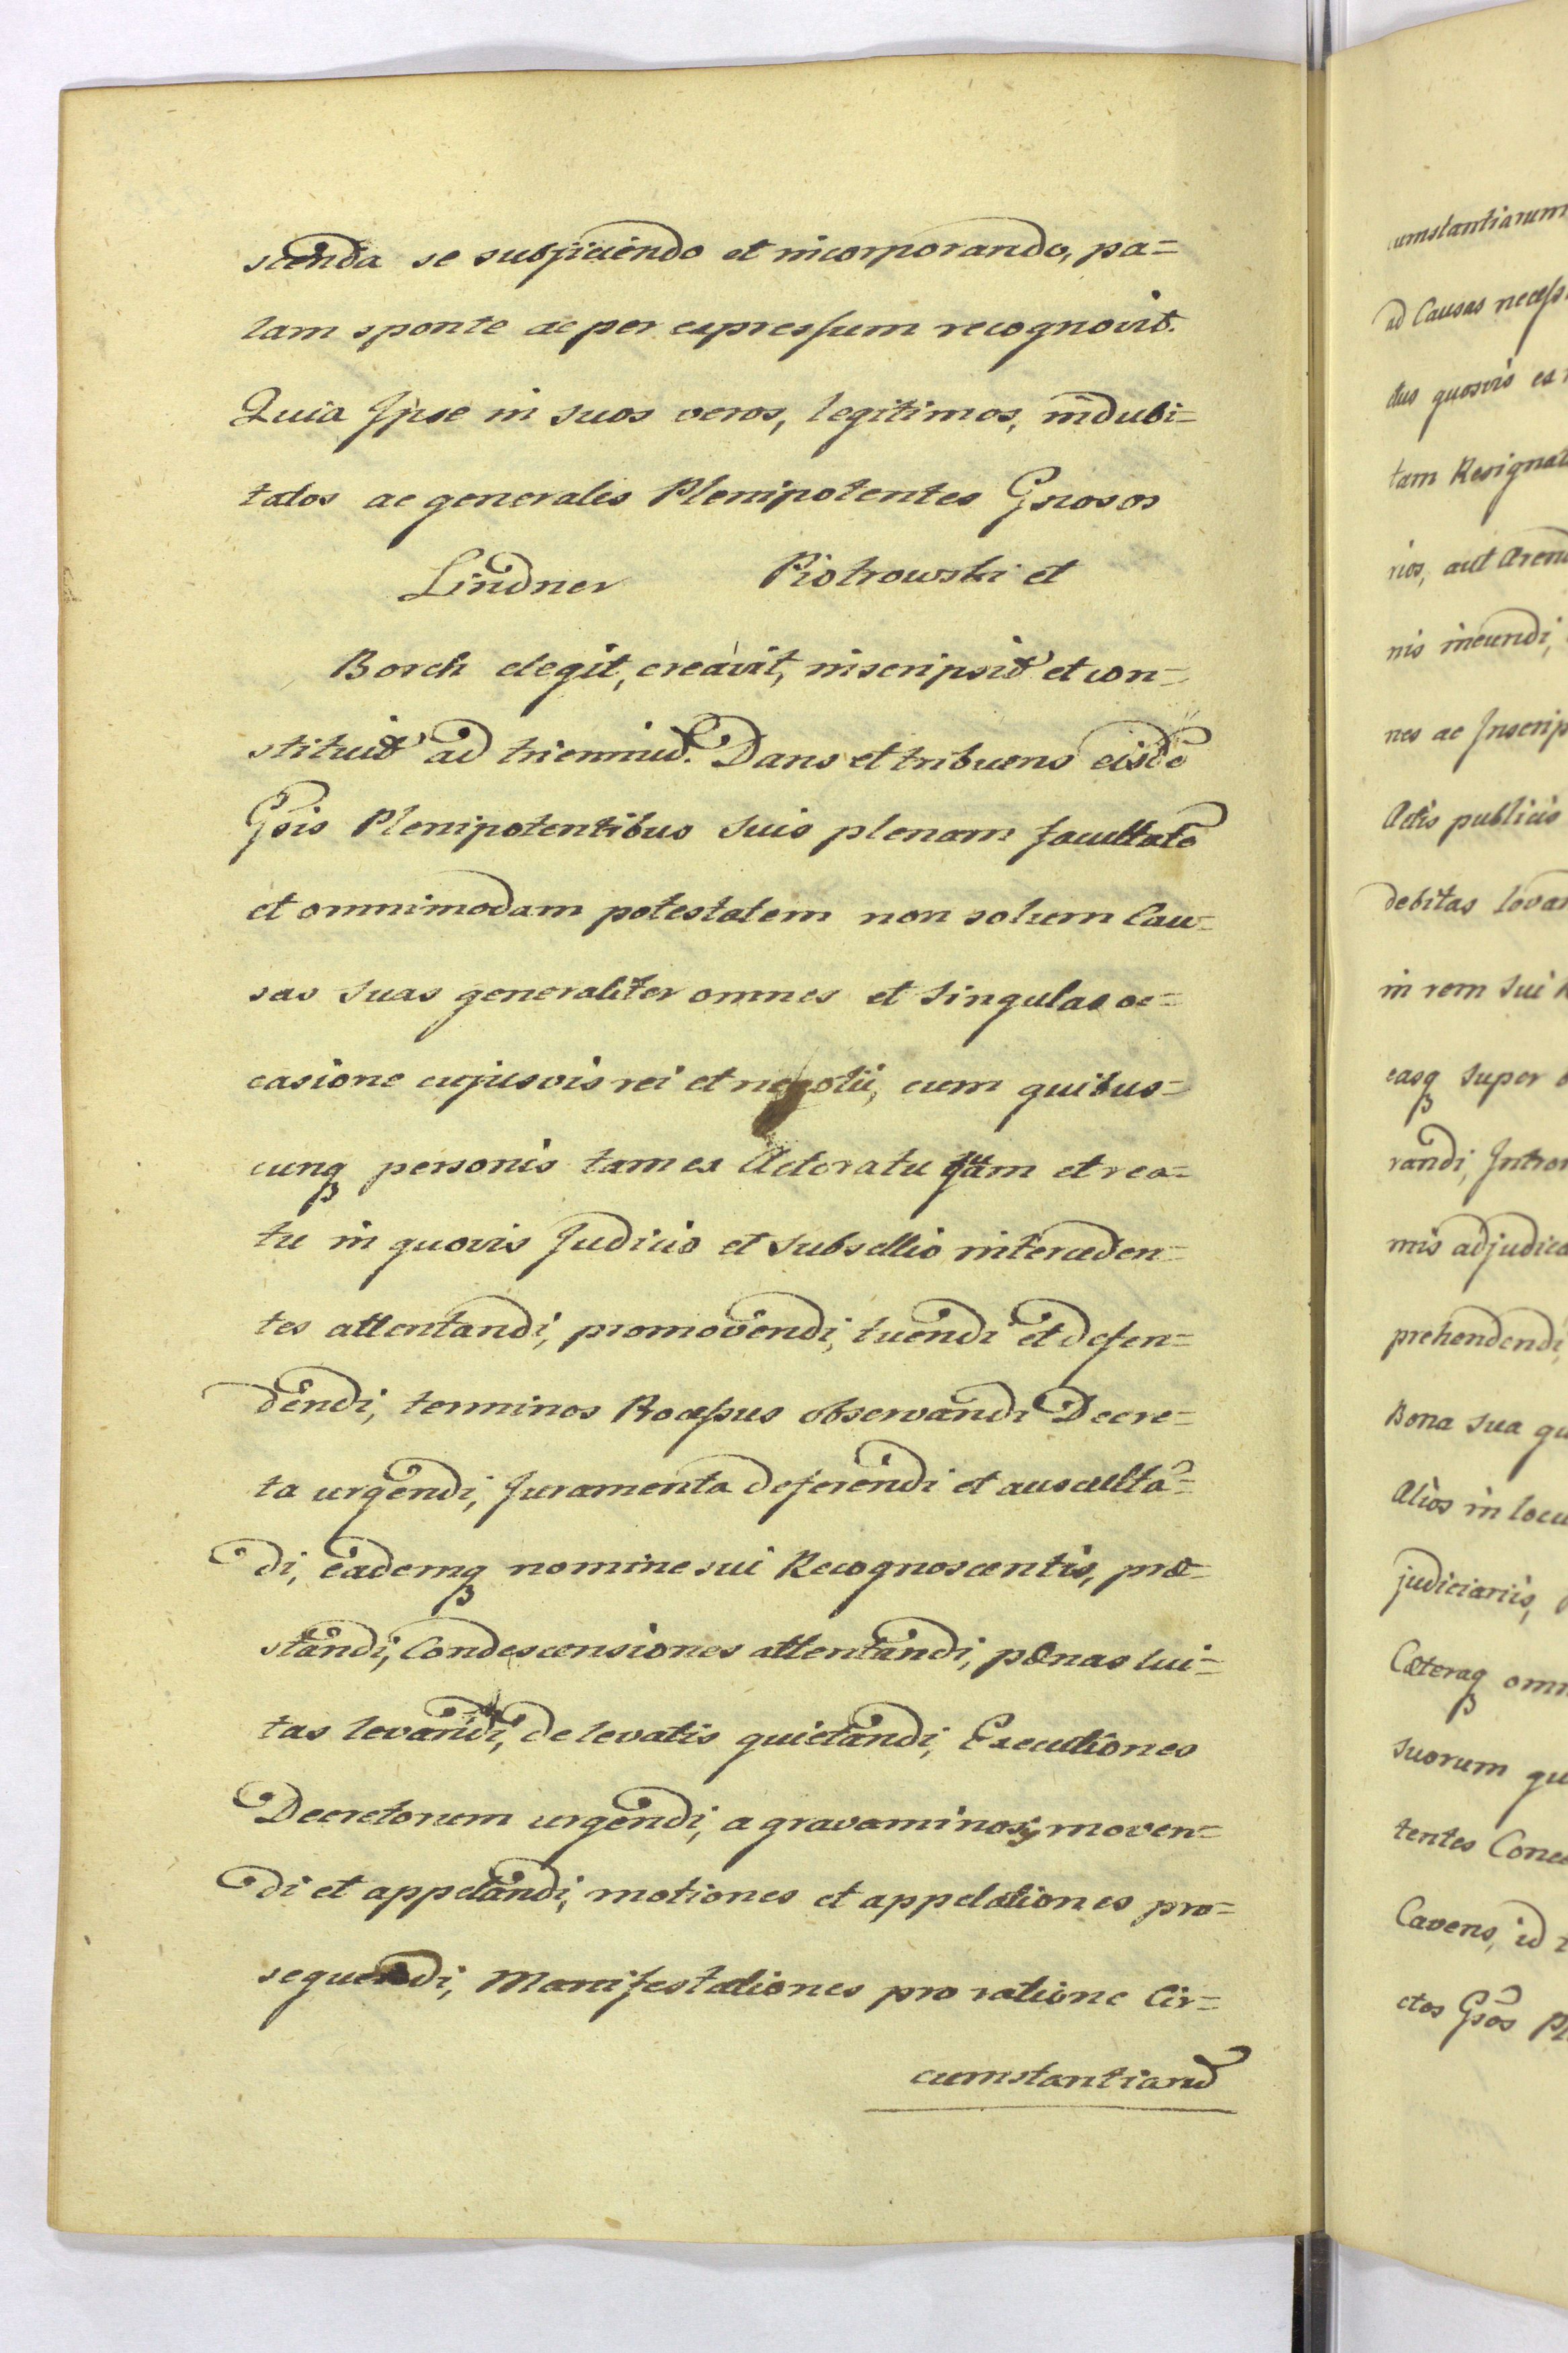 scenda se subjiciendo et incorporando, pa=
lam sponte ac per expressum recognovit.
Quia Ipse in suos veros, legitimos, indubi=
tatos ac generales Plenipotentes Gnosos
Lindner Piotrowski et
Borch elegit, creavit, inscripsit et con=
stituit ad trienniũ. Dans et tribuens eisdẽ
Gsis Plenipotentibus suis plenam facultatẽ
et omnimodam potestatem non solum Cau=
sas suas generaliter omnes et singulas oc=
casione cujusvis rei et negotii, cum quibus=
cunq personis tam ex Actoratu quam et rea=
tu in quovis Judicio et Subsellio interceden=
tes attentandi, promovendi, tuendi et defen=
dendi, terminos Processus observandi Decre=
ta urgendi, Juramenta deferendi et ausculta͂=
di, eademq nomine sui Recognoscentis, præ=
standi, Condescensiones attentandi, pœnas lui=
tas levandi, de levatis quietandi, Executiones
Decretorum urgendi, a gravaminosis moven=
di et appellandi, motiones et appelationes pro=
sequendi, Manifestationes pro ratione Cir=
cumstantiarũ
umstantiarum
ad Causas necess
ctus quosvis ex
tam Resignat
rios, aut Arend
nis ineundi,
nes ac Inscrip
Actis publicis
debitas levan
in rem sui R
easq super
randi, Intro
mis adjudica
prehendendi,
Bona sua qu
Alios in locu
judiciariis,
Cæteraq omn
suorum qu
tentes Conce
Cavens, id
ctos Gsos Pl